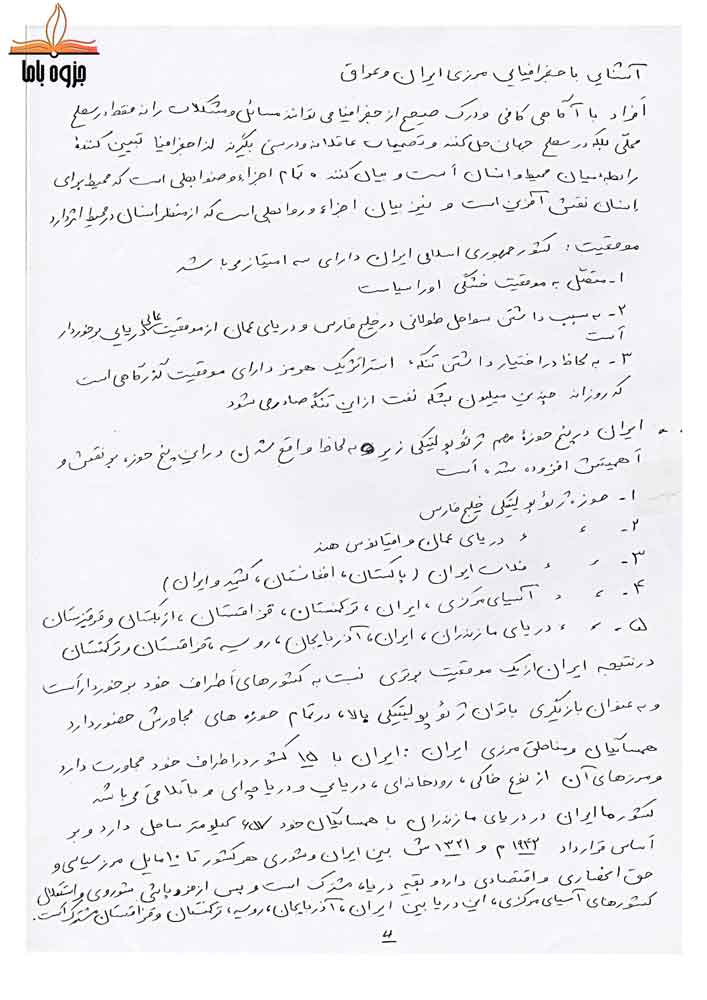 جزوه باما
آشنایی با جغرافیایی مرزی ایران و عراق
افراد با آگاهی کافی و درک صحیح از جغرافیا می توانند مسائل و مشکلات را نه فقط در سطح
محلّی بلکه در سطح جهانی حل کنند و تصمیمات عاقلانه و درستی بگیرند لذا جغرافیا تبیین کنندۀ
رابطه میان محیط و انسان است و بیان کننده تمام اجزاء و ضوابطی است که محیط برای
انسان نقش آفرین است و نیز بیان اجزاء و روابطی است که از منظر انسان در محیط اثر دارد
موقعیت: کشور جمهوری اسلامی ایران دارای سه امتیاز می باشد
۱- متصّل به موقعیت خشکی اوراسیاست
۲- به سبب داشتن سواحل طولانی در خلیج فارس و دریای عمان از موقعیت عالی دریایی برخوردار
است
۳- به لحاظ در اختیار داشتن تنگه استراتژیک هرمز دارای موقعیت گذرگاهی است
که روزانه چندین میلون بشکه نفت از این تنگه صادر می شود
ایران در پنج حوزۀ مهم ژئوپولتیکی زیر به لحاظ واقع شدن در این پنج حوزه بر نقش و
اهمیتش افزوده شده است
۱- حوزه ژئوپولتیکی خلیج فارس
۲- ء ء دریای عمان و اقیانوس هند
۳- ء ء فلات ایران (پاکستان، افغانستان، کشمیر و ایران)
۴- ء ء آسیای مرکزی، ایران، ترکمنستان، قزاقستان، ازبکستان و قرقیزستان
۵- ء ء دریای مازندران، ایران، آذربایجان، روسیه، قزاقستان و ترکمنستان
در نتیجه ایران از یک موقعیت برتری نسبت به کشورهای اطراف خود برخوردار است
و به عنوان بازیگری با توان ژئوپولتیکی بالا، در تمام حوزه های مجاورش حضور دارد
همسایگان و مناطق مرزی ایران: ایران با ۱۵ کشور در اطراف خود مجاورت دارد
و مرزهای آن از نوع خاکی، رودخانه ای، دریایی و دریاچه ای و باتلاقی می باشد
کشور ما ایران در دریای مازندران با همسایگان خود ۶۵۷ کیلومتر ساحل دارد و بر
اساس قرارداد ۱۹۴۲ م و ۱۳۲۱ ش بین ایران و شوروی هر کشور تا ۱۰ مایل مرز سیاسی و
حق انحصاری و اقتصادی دارد و بقیه دریا، مشترک است و پس از فروپاشی شوروی و استقلال
کشورهای آسیای مرکزی، این دریا بین ایران، آذربایجان، روسیه، ترکمنستان و قزاقستان مشترک است.